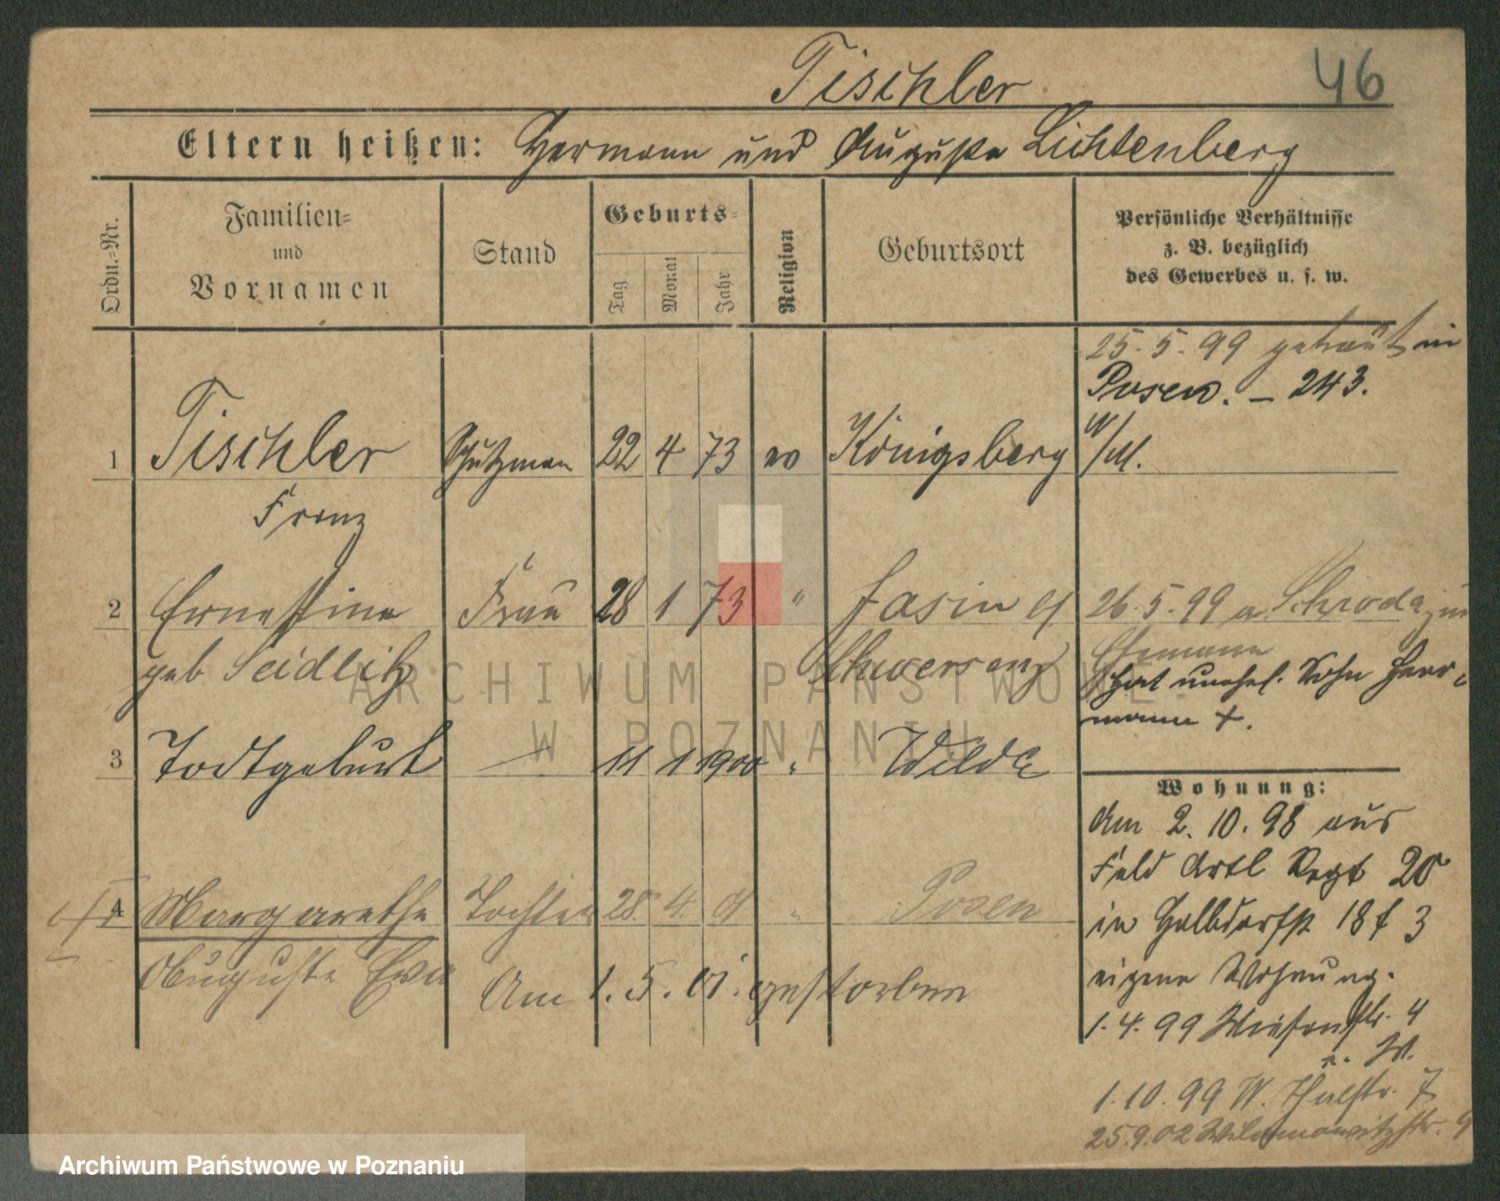 Tischler
46
Eltern heißen: Hermann und Auguste Lichtenberg
Ordn.-Nr.
Familien- und Vornamen
Stand
Geburts-
Tag
Monat
Jahr
Religion
Geburtsort
Persönliche Verhältnisse
z. B. bezüglich
des Gewerbes u. s. w.
25.5.99 getraut in
Posen. – 243.
1 Tischler Schutzmann 22 4 73 ev Königsberg
Franz
2 Ernestine Frau 28 1 73 " Jasin
geb Seidlitz Schwersenz
26.5.99 a. Schroda zum
Ehemann
hat unehel. Sohn Herr-
mann +.
3 Todtgeburt — 11 1 1900 " Wilda
Wohnung:
Am 2.10.98 aus
Feld Artl Regt 20
in Halbdorfstr 18 f 3
eigene Wohnung.
1.4.99 Wiesenstr. 4
1.10.99 W. Thalstr. 7
25.9.02
4 Margarethe Tochter 28 4 01 " Posen
Auguste Eva
Am 1.5.01. gestorben
ARCHIWUM PAŃSTWOWE
W POZNANIU
Archiwum Państwowe w Poznaniu